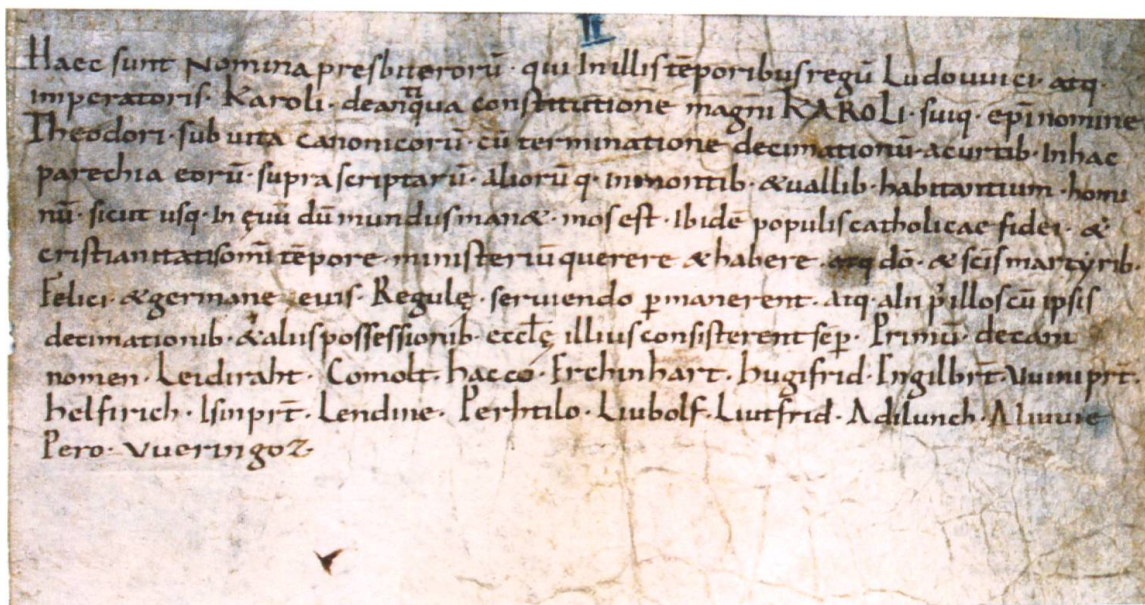 II
Haec sunt Nomina presbiterorū · qui In illis tēporibus regū Ludouuici · atq·
imperatoris · Karoli · de antiqua constitutione magni KAROLI · suiq · ep̄i nomine
Theodori · sub uita canonicorū · cū terminatione decimationū · a curtib · In hac
parechia eorū · supra scriptarū · aliorū q · In montib · & uallib · habitantium · homi
nū · sicut usq · In ęuū dū mundus man& · mos est · Ibidē populis catholicae fidei · &
cristianitatis om̄i tēpore · ministeriū querere & habere · atq dō · & sc̄is martyrib ·
Felici · & germane eius · Regulę · seruiendo ꝑmanerent · atq · alii p illos cū ipsis
decimationib · & aliis possessionib · eccl̄ę illius consisterent sēꝑ · Primū · decani
nomen · Leidiraht · Comolt · hacco · Erchinhart · hugifrid · Engilbr̄t · Uuinipr̄t ·
helfirich · Isinpr̄t · Lendine · Perhtilo · Liubolf · Liutfrid · Adilunch · Aluuuie
Pero · Vueringoz ·